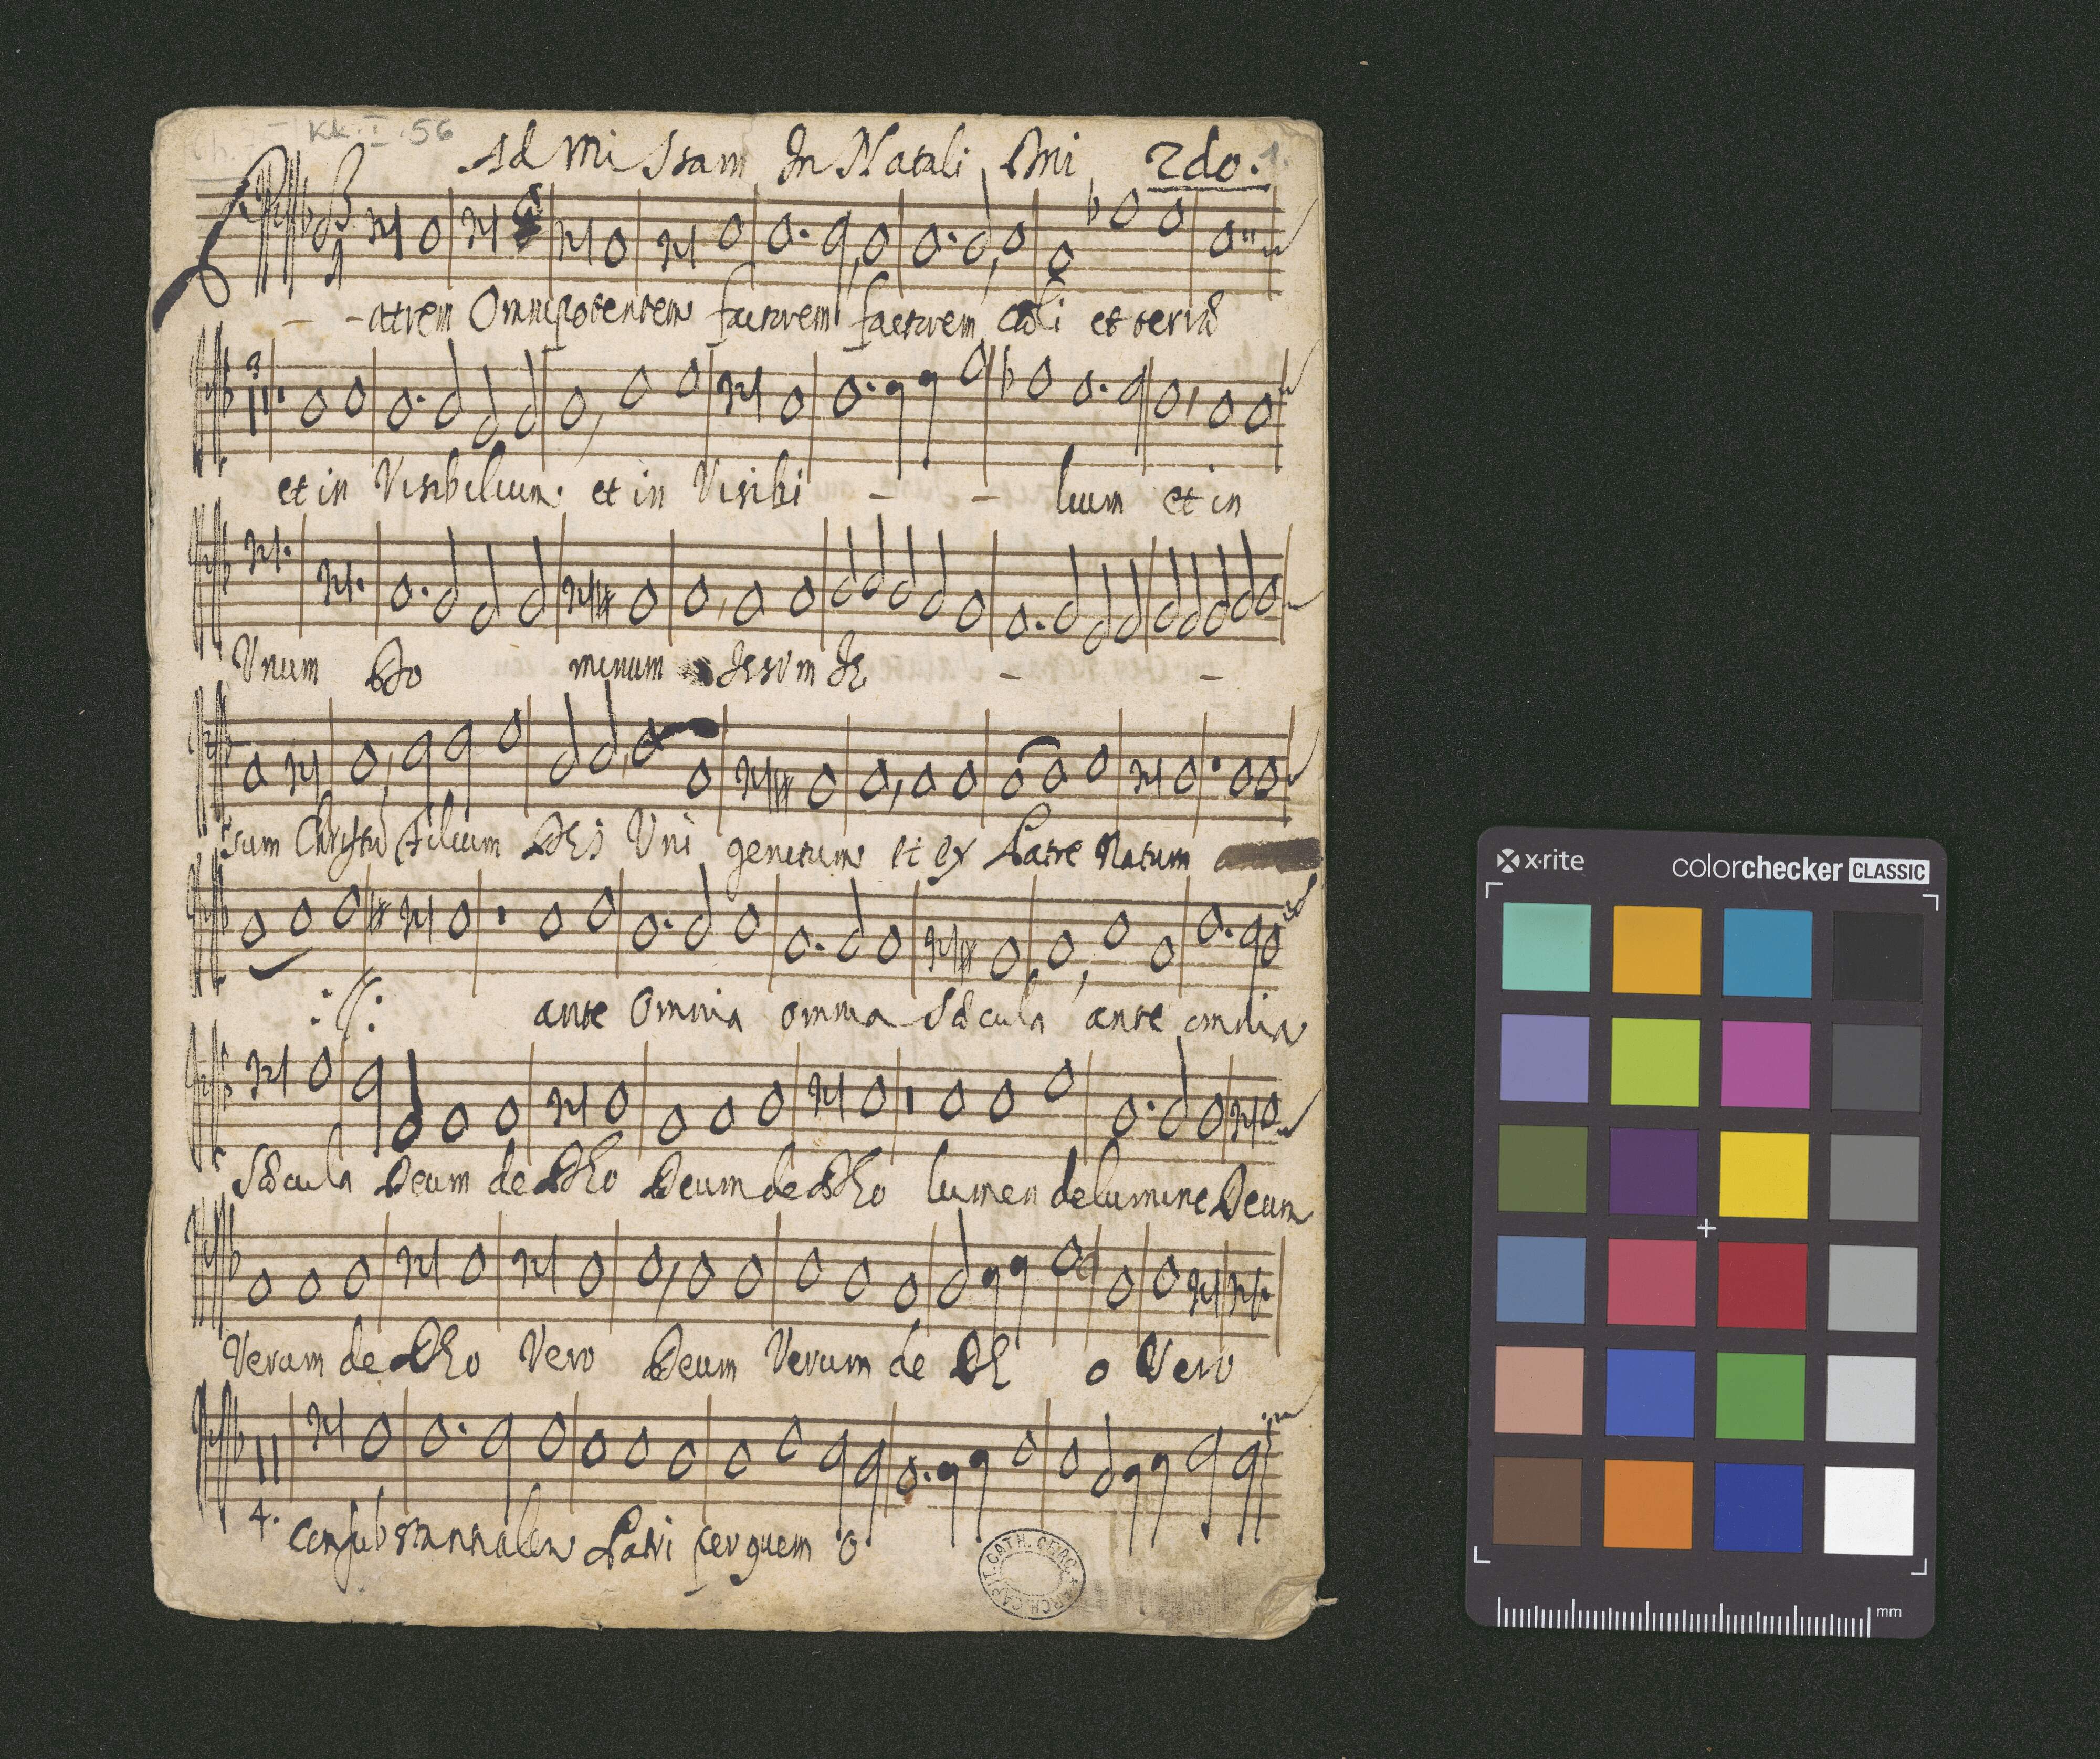 Kk. I. 56
Ad Missam In Natali Dmi 2do. 1.
- -atrem Omnipotentem factorem factorem cæli et terræ
et in Visibilium. et in Visibi - - lium et in
Vnum Do minum Jesum Je - -
sum Christū Filium DEi Vni genitum et ex Patre Natum
://: ante Omnia omnia Sæcula ante omnia
Sæcula Deum de DEo Deum de DEo lumen de lumine Deum
Verum de DEo Vero Deum Verum de DE o Vero
4. Consubstantialem Patri per quem o
x·rite colorchecker CLASSIC
mm